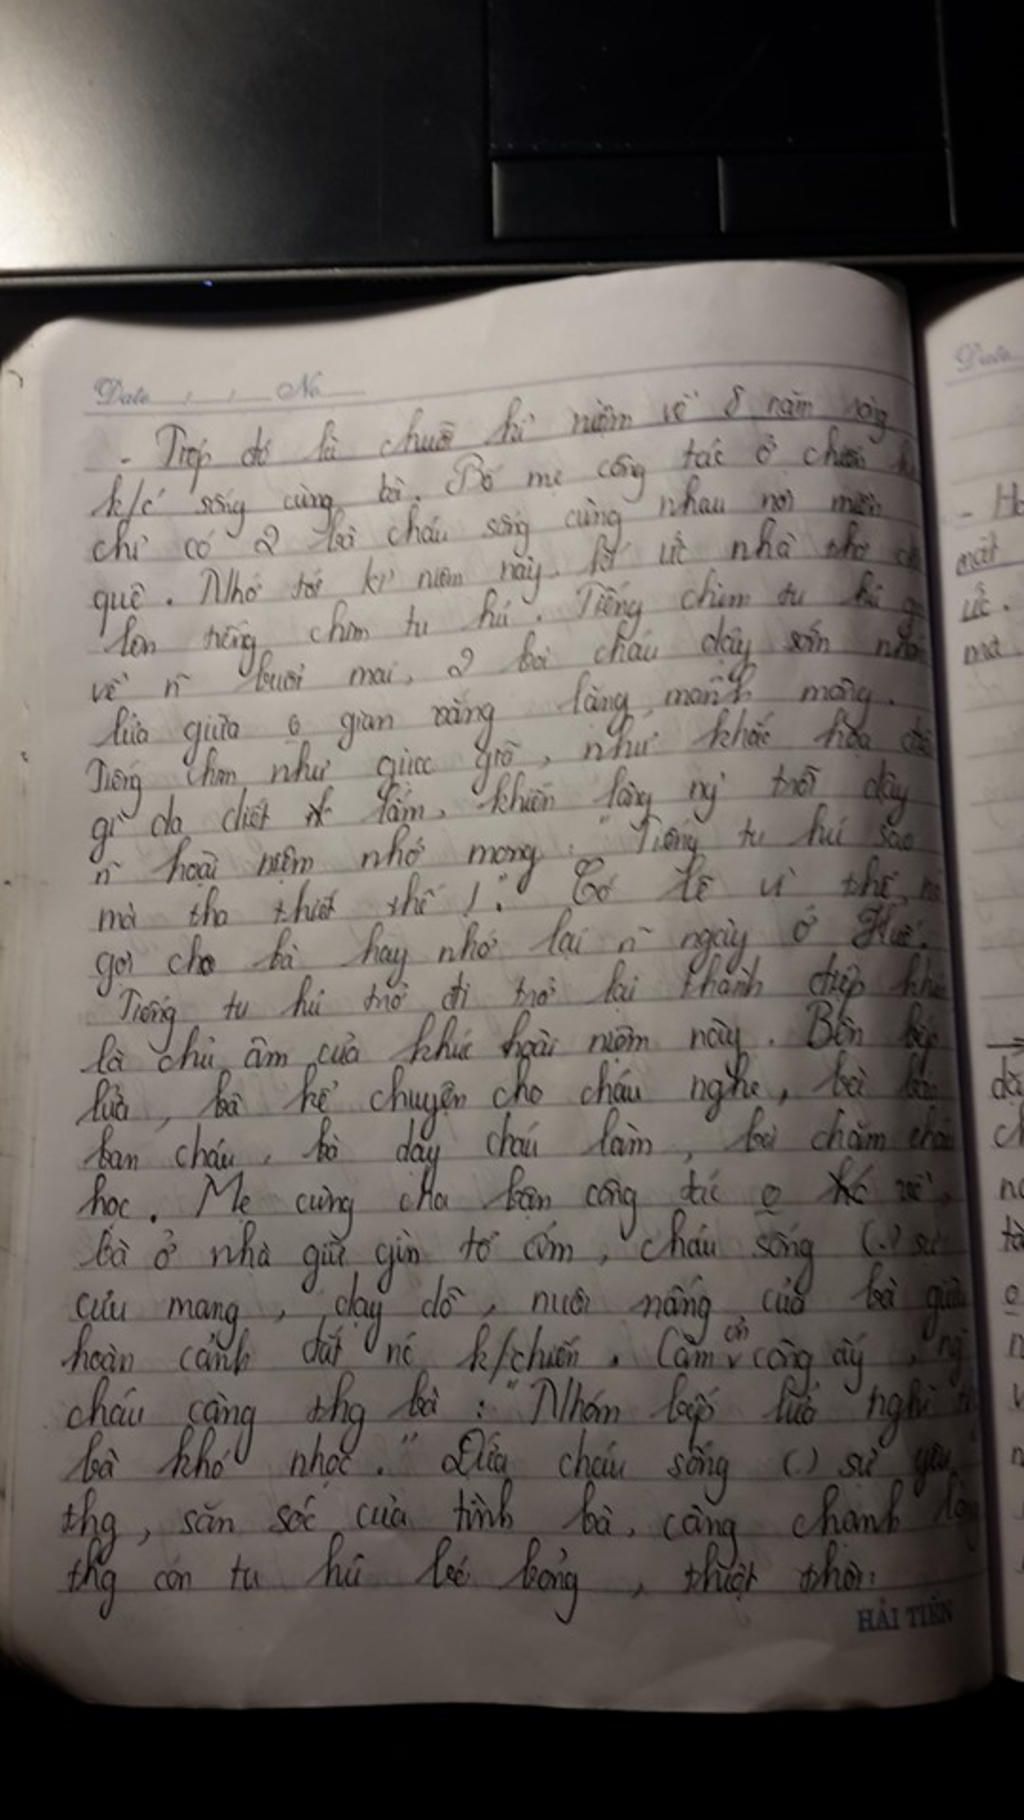 Date / / No
- Tiếp đó là chuỗi kỉ niệm về 8 năm ròng
k/c sống cùng bà. Bố mẹ công tác ở chiến
chỉ có 2 bà cháu sống cùng nhau nơi miền
quê. Nhớ tới kỉ niệm này. kí ức nhà thơ
lên tiếng chim tu hú. Tiếng chim tu hú
về n~ buổi mai, 2 bà cháu dậy sớm nhóm
lửa giữa o gian vắng lặng, mênh mông.
Tiếng chim như giục giã, như khắc khoải
gì da diết lắm, khiến lòng ng` trỗi dậy
n~ hoài niệm nhớ mong: "Tiếng tu hú sao
mà tha thiết thế !." Có lẽ vì thế, nó
gợi cho bà hay nhớ lại n~ ngày ở Huế.
Tiếng tu hú trở đi trở lại thành điệp khúc
là chủ âm của khúc hoài niệm này. Bên bếp
lửa, bà kể chuyện cho cháu nghe, bà
ban cháu, bà dạy cháu làm, bà chăm cháu
học. Mẹ cùng cha bận công tác o về,
bà ở nhà giữ gìn tổ ấm, cháu sống (.) sự
cưu mang, dạy dỗ, nuôi nấng của bà giữa
hoàn cảnh đất nc k/chiến. Cảm ơn công ấy, ng`
cháu càng thg bà: "Nhóm bếp lửa nghĩ
bà khó nhọc." Đứa cháu sống (.) sự yêu
thg, săn sóc của tình bà, càng chạnh lòng
thg con tu hú lạc lõng, thiệt thòi:
HẢI TIẾN
Date
mắt
ức.